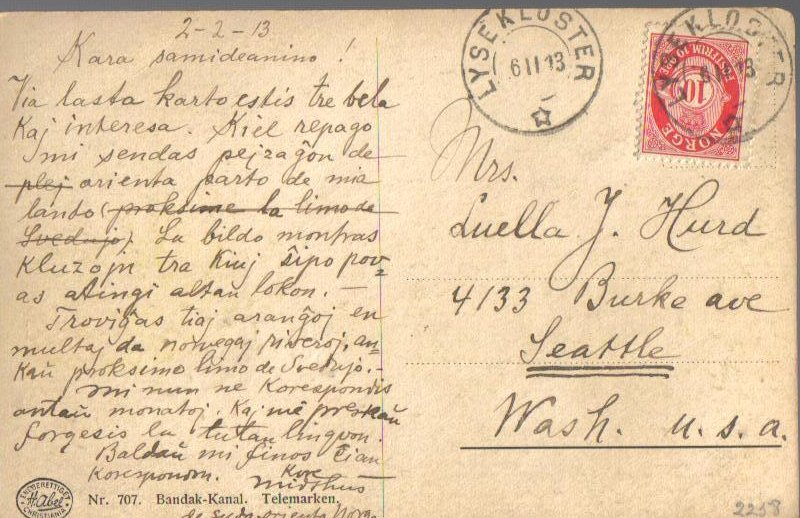 2-2-13
Kara samideanino!
Via lasta karto estis tre bela
Kaj interesa. Kiel repago
mi sendas pejzaĝon de
plej orienta parto de mia
lando (proksime la limo de
Svedujo). La bildo montras
Kluzojn tra kiuj ŝipo pov-
as atingi altan lokon. —
Troviĝas tiaj aranĝoj en
multaj da norvegaj riveroj, an-
kaŭ proksimo limo de Svedujo. —
mi nun ne Korespondis
antaŭ monatoj. Kaj mi preskaŭ
forgesis la tutan lingvon.
Baldaŭ mi finos ĉian
Korespondn. Kore
de sud-orienta
Nr. 707. Bandak-Kanal. Telemarken.
ENEBERETTIGET
H. Abel
CHRISTIANIA
LYSEKLOSTER
6 II 13
LYSEKLOSTER
6 II 13
POSTFRIM. 10 ØRE
10
NORGE
Mrs.
Luella J. Hurd
4133 Burke ave
Seattle
Wash. U.S.A.
2258